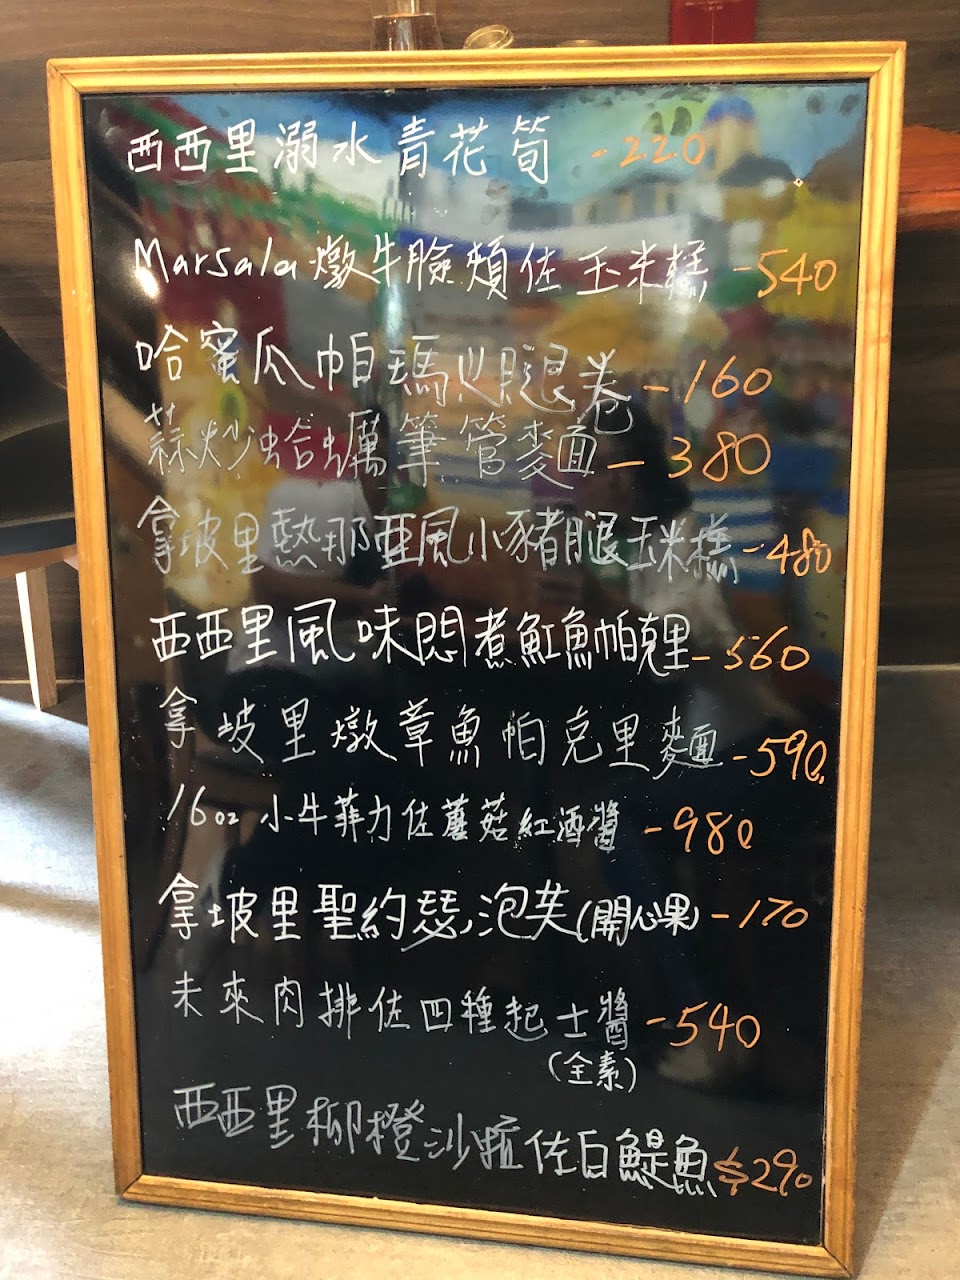 西西里溺水青花筍 -220
Marsala燉牛臉頰佐玉米糕 -540
哈蜜瓜帕瑪火腿卷 -160
蒜炒蛤蠣筆管麵 - 380
拿坡里熱那亞風小豬腿玉米糕 -480
西西里風味悶煮魟魚帕克里 - 560
拿坡里燉章魚帕克里麵 -590
16oz 小牛菲力佐蘑菇紅酒醬 -980
拿坡里聖約瑟泡芙(開心果) -170
未來肉排佐四種起士醬 -540
(全素)
西西里柳橙沙拉佐白鯷魚 $290